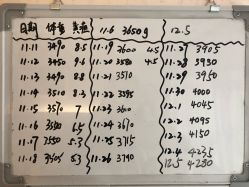 日期 体重 黄疸
11.11 3490 8.5
11.12 3450 9.6
11.13 3490 8.8
11.14 3510 8.3
11.15 3570 7
11.16 6.5
11.17 5.3
11.18 5.3
11.6 3650g
11.19 3600 4.5
11.20 3580 4.5
11.21 3570
11.22 3595
11.23 3600
11.24 3670
11.25 3715
11.26 3790
12.5
11.27 3905
11.28 3930
11.29 3950
11.30 4000
12.1 4045
12.2 4095
12.3 4150
12.4 4235
12.5 4280